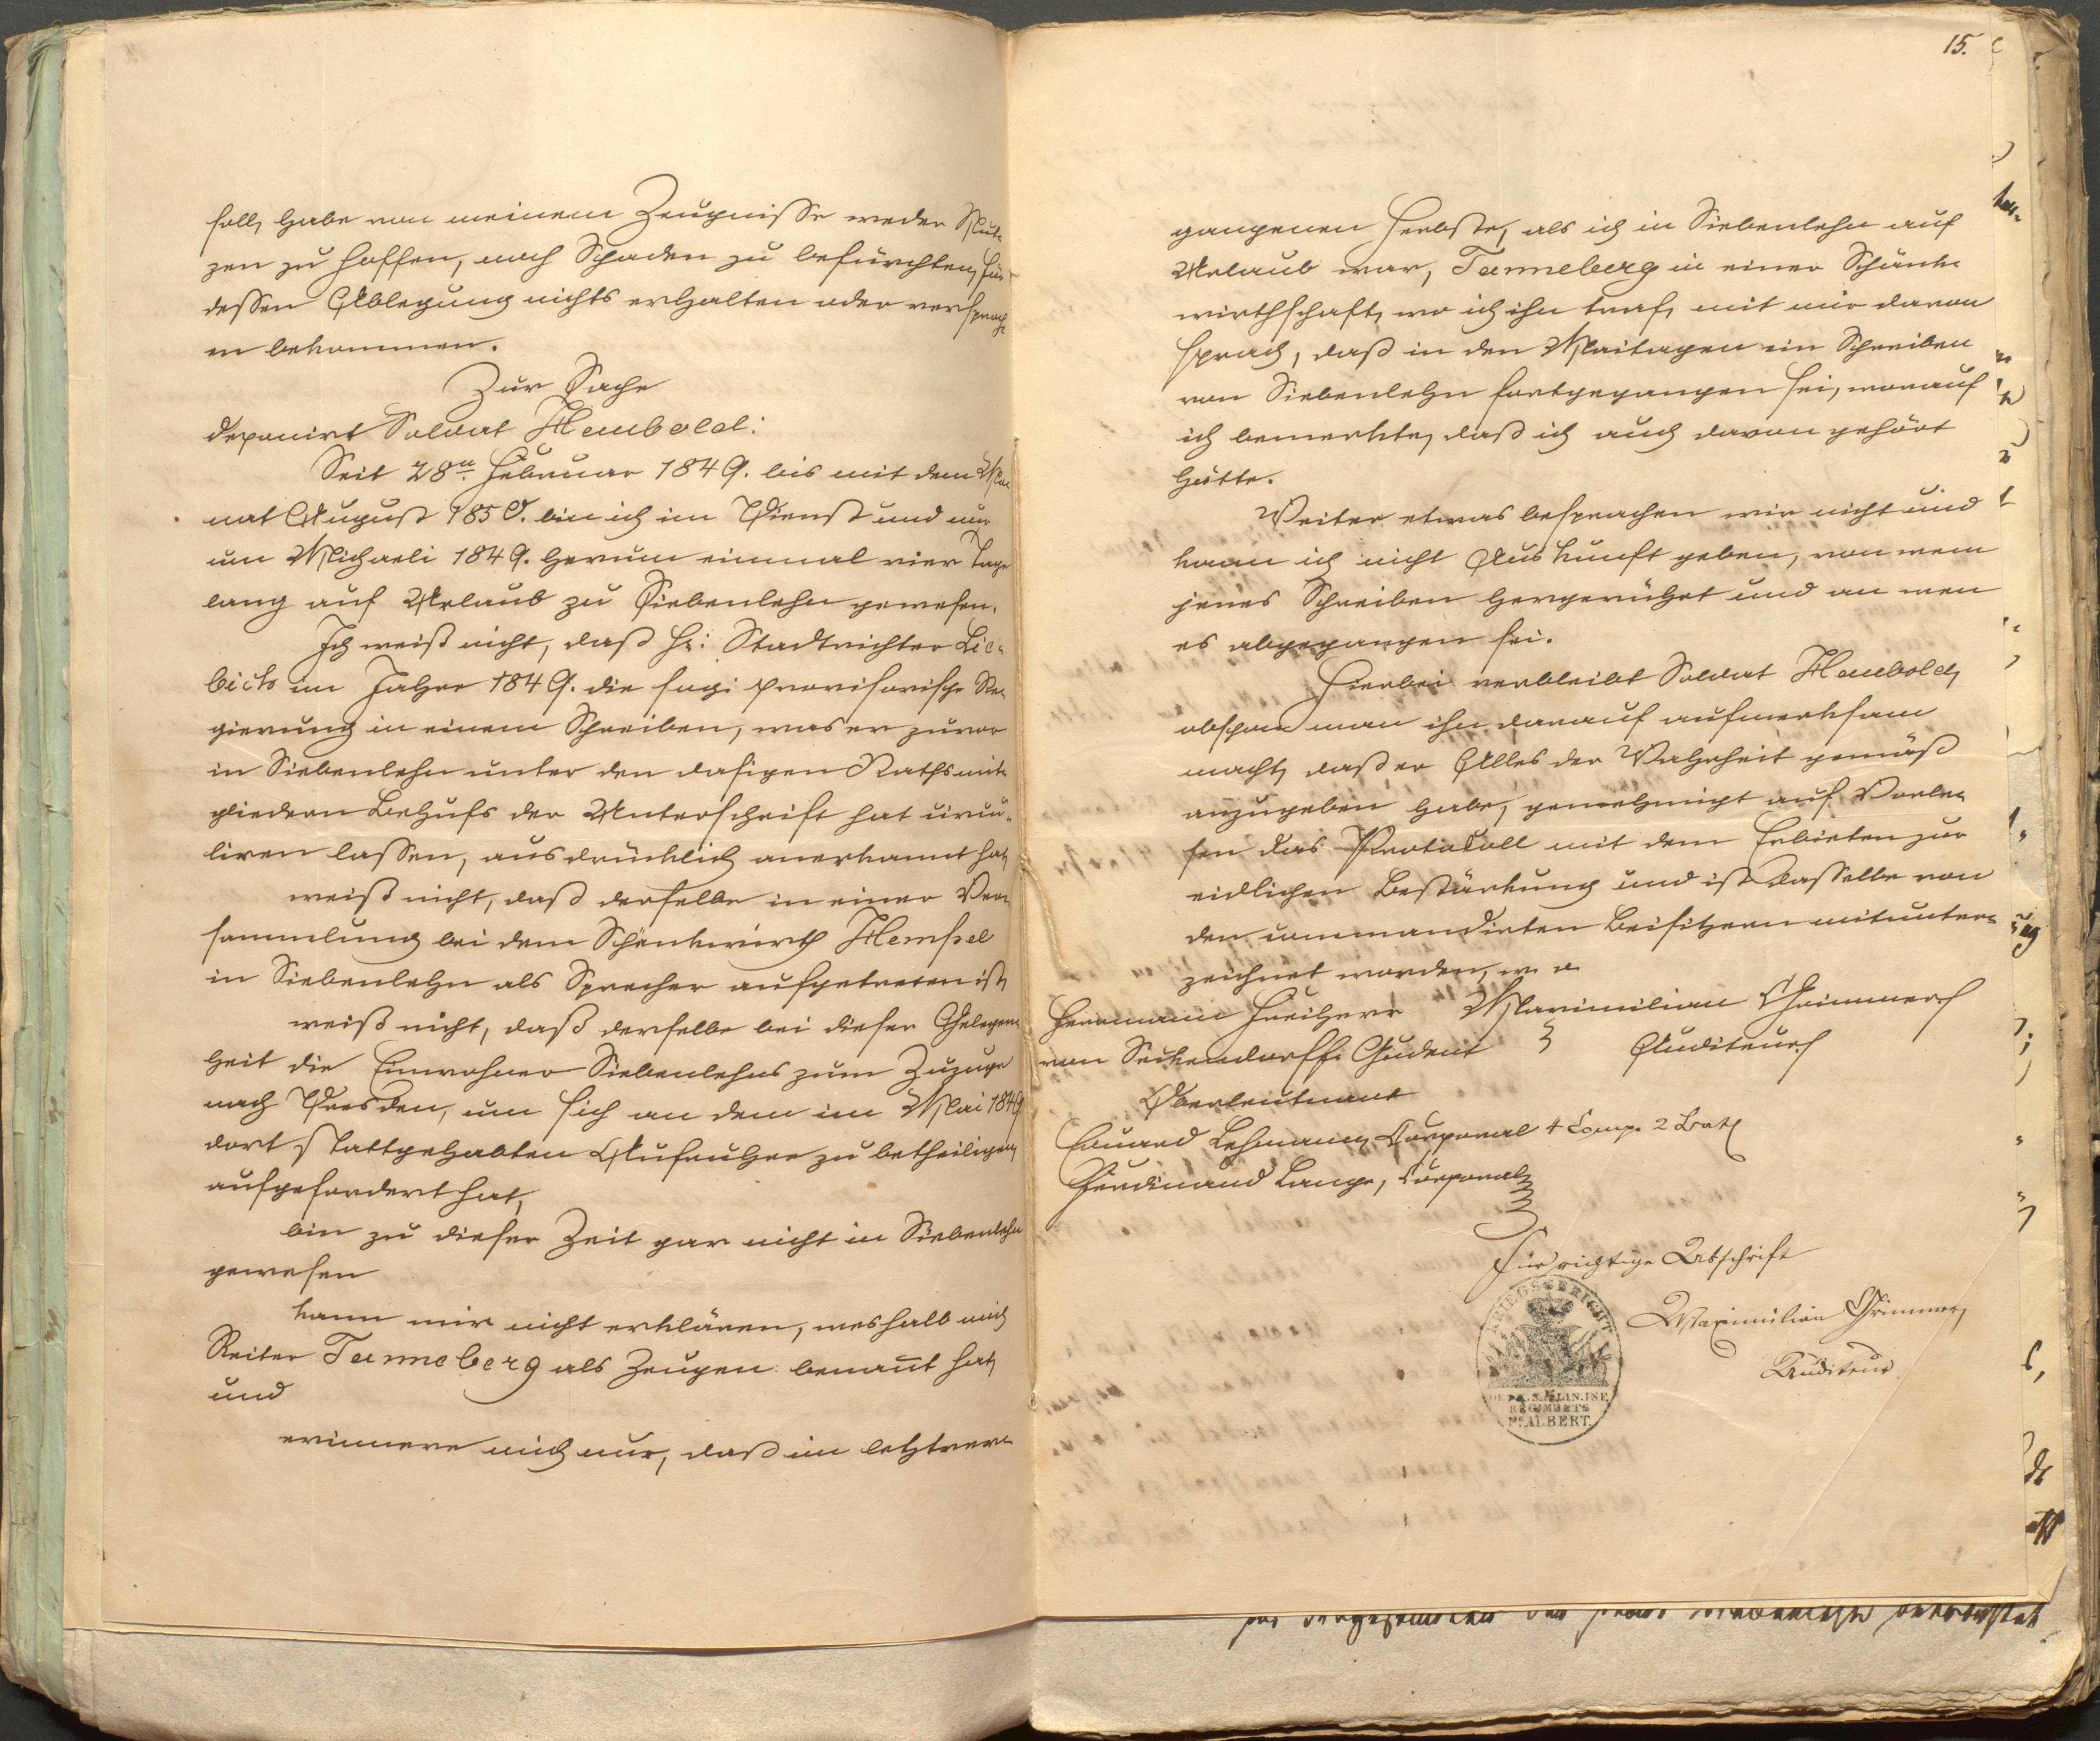 soll, habe von meinem Zeugnisse weder Nut-
zen zu hoffen, noch Schaden zu befürchten, für
dessen Ablegung nichts erhalten oder versproch-
en bekommen.
Zur Sache
deponirt Soldat Heubold:
Seit 28n Februar 1849. bis mit dem Mo-
nat August 1850. bin ich im Dienst und nur
um Michaeli 1849. herum einmal vier Tage
lang auf Urlaub zu Siebenlehn gewesen.
Ich weiß nicht, daß Hr: Stadtrichter Lie-
bich im Jahre 1849. die sogn: provisorische Re-
gierung in einem Schreiben, was er zuvor
in Siebenlehn unter den dasigen Rathsmit-
gliedern Behufs der Unterschrift hat circu-
liren lassen, ausdrücklich anerkannt hat,
weiß nicht, daß derselbe in einer Ver-
sammlung bei dem Schenkwirth Hempel
in Siebenlehn als Sprecher aufgetreten ist,
weiß nicht, daß derselbe bei dieser Gelegen-
heit die Einwohner Siebenlehns zum Zuzuge
nach Dresden, um sich an dem im Mai 1849
dort stattgehabten Aufruhre zu betheiligen,
aufgefordert hat,
bin zu dieser Zeit gar nicht in Siebenlehn
gewesen
kann mir nicht erklären, weshalb mich
Reiter Tanneberg als Zeugen benannt hat,
und
erinnere mich nur, daß im letztver-
15.
gangenen Herbste, als ich in Siebenlehn auf
Urlaub war, Tanneberg in einer Schänk-
wirthschaft, wo ich ihn traf, mit mir davon
sprach, daß in den Maitagen ein Schreiben
von Siebenlehn fortgegangen sei, worauf
ich bemerkte, daß ich auch davon gehört
hätte.
Weiter etwas besprachen wir nicht und
kann ich nicht Auskunft geben, von wem
jenes Schreiben hergerührt und an wen
es abgegangen sei.
Hierbei verbleibt Soldat Heubold,
obschon man ihn darauf aufmerksam
macht, daß er Alles der Wahrheit gemäß
anzugeben habe, genehmigt auf Vorle-
sen das Protokoll mit dem Erbieten zur
eidlichen Bestärkung und ist dasselbe von
den commandirten Beisitzern mitunter-
zeichnet worden, w. o.
Hermann Freiherr Maximilian Grimmer
von Seckendorff Gudent Auditeur
Oberleutnant
Eduard Lehmann, Corporal 4 Comp. 2 Bat.
Ferdinand Lange, Corporal
Für richtige Abschrift
Maximilian Grimmer,
Auditeur.
KRIEGSGERICHT
REGIMENTS
Pz ALBERT.